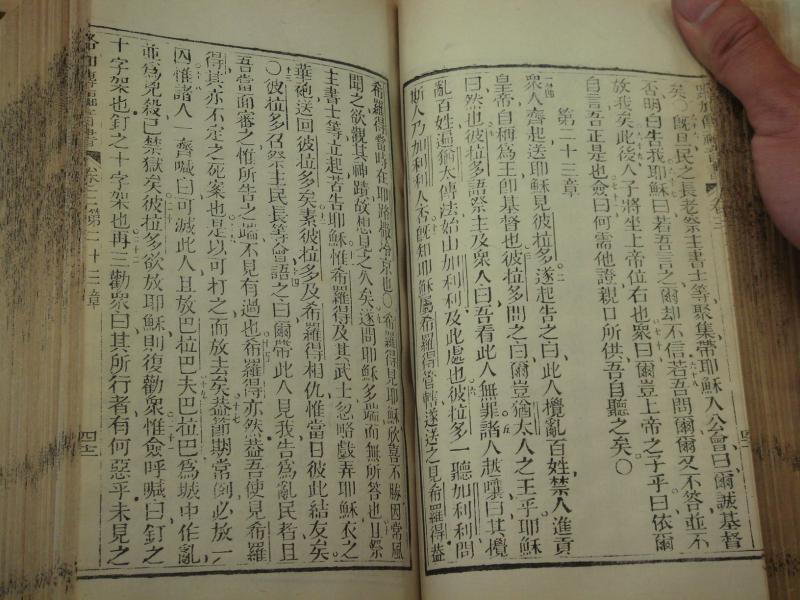 矣〇既旦民之長老祭主書士等聚集帶耶穌入公會曰爾誠基督
否明白告我耶穌曰若吾言之爾却不信若吾問爾爾又不答並不
放我矣此後人子將坐上帝位右也衆曰爾豈上帝之子乎曰依爾
自言吾正是也僉曰何需他證親口所供吾自聽之矣〇
第二十三章
衆人齊起送耶穌見彼拉多遂起告之曰此人攪亂百姓禁人進貢
皇帝自稱為王卽基督也彼拉多問之曰爾豈猶太人之王乎耶穌
曰然也彼拉多語祭主及衆人曰吾看此人無罪諸人越嚷曰其攪
亂百姓遍猶太傳法始由加利利及此處也彼拉多一聽加利利問
斯人乃加利利人否旣知耶穌屬希羅得管轄遂送之見希羅得蓋
希羅得當時在耶路撒冷京也〇希羅得見耶穌欣喜不勝因常風
聞之欲觀其神蹟故想見之久矣遂問耶穌多端而無所答也且祭
主書士等立起苦告耶穌惟希羅得及其武士忽略戲弄耶穌衣之
華袍送回彼拉多矣素彼拉多及希羅得相仇惟當日彼此結友矣
〇彼拉多召祭主民長等會語之曰爾帶此人見我告為亂民者且
吾當面審之惟所告之端不見有過也希羅得亦然蓋吾使見希羅
得其亦不定之死案也是以可打之而放去矣蓋節期常例必放一
囚惟諸人一齊喊曰可滅此人且放巴拉巴夫巴拉巴為城中作亂
並為兇殺已禁獄矣彼拉多欲放耶穌則復勸衆惟僉呼喊曰釘之
十字架也釘之十字架也再三勸衆曰其所行者有何惡乎未見之
路加傳福音書 卷三 第二十三章 四十三